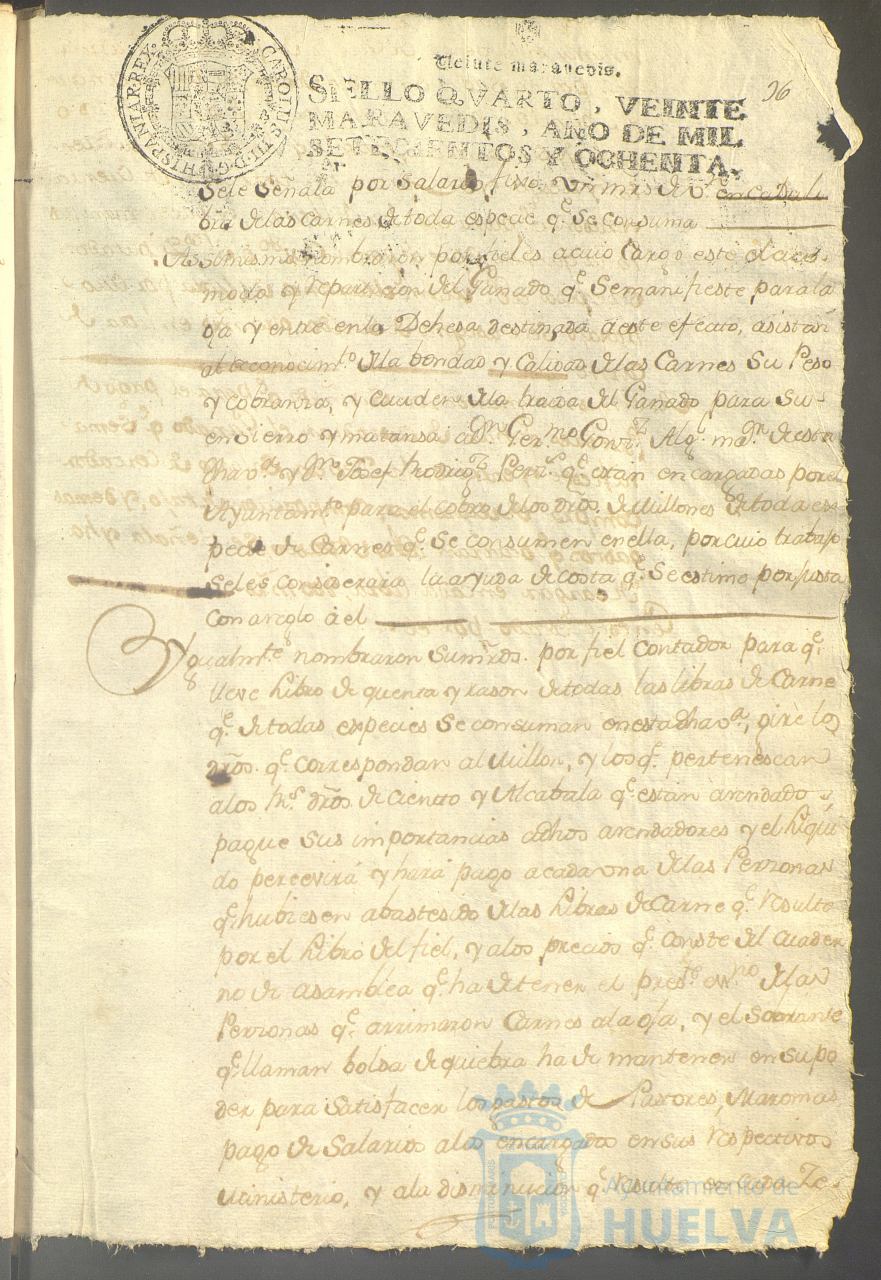 96
Veinte maravedis.
SELLO QVARTO, VEINTE
MARAVEDIS, AÑO DE MIL
SETECIENTOS Y OCHENTA.
CAROLUS III D.G. HISPANIAR. REX
Sele Señala por Salario fixo Un mrs de Vn en cada li
bra de las carnes de toda especie q.e Se consuma
Assimismo nombraron por fieles a cuio Cargo esté el aco-
modo y repartición del Ganado q.e Semanifieste para la
y entre en la Dehesa destinada á este efecto, asistan
al reconocim.to dela bondad y Calidad delas Carnes Su Peso
y cobranza, y cuiden dela traida del Ganado para Su
ensierro y matansa, a D.n Ger.mo Alg.l ma.or de esta
dha v.a y D.n Josef Rodrig.z q.e están encargadas por el
Ayuntam.to para el cobro delos dros. de Millones de toda es-
pecie de Carnes q.e Se consumen en ella, por cuio trabajo
Seles considerará la ayuda de costa q.e Se estimo por justa
con areglo á el
Ygualm.te nombraron Sumrds. por fiel Contador para q.e
lleve Libro de quenta y rason de todas las libras de Carne
q.e de todas especies Se consuman en esta dha v.a, gire los
dros. q.e correspondan al Millon, y los q.e pertenescan
alos R.s dros de Ciento y Alcabala q.e están arendado
pague sus importancias adhos arendadores y el Liqui
do percevirá y hará pago a cada una delas Perzonas
q.e hubiesen abastesido delas Libras de Carne q.e resulte
por el Libro del fiel, y alos precios q.e Conste del Cuader
no de asamblea q.e ha de tener el pres.te es.no delas
Perzonas q.e arrimaron Carnes ala, y el Sobrante
q.e llaman bolsa de quiebra ha de mantener en su po
der para Satisfacer los pastos de Pastores, Maromas
pago de Salarios alos encargados en sus respectivos
Ministerio, y ala disminución q.e resulte en cada Ze-
Ayuntamiento de
HUELVA